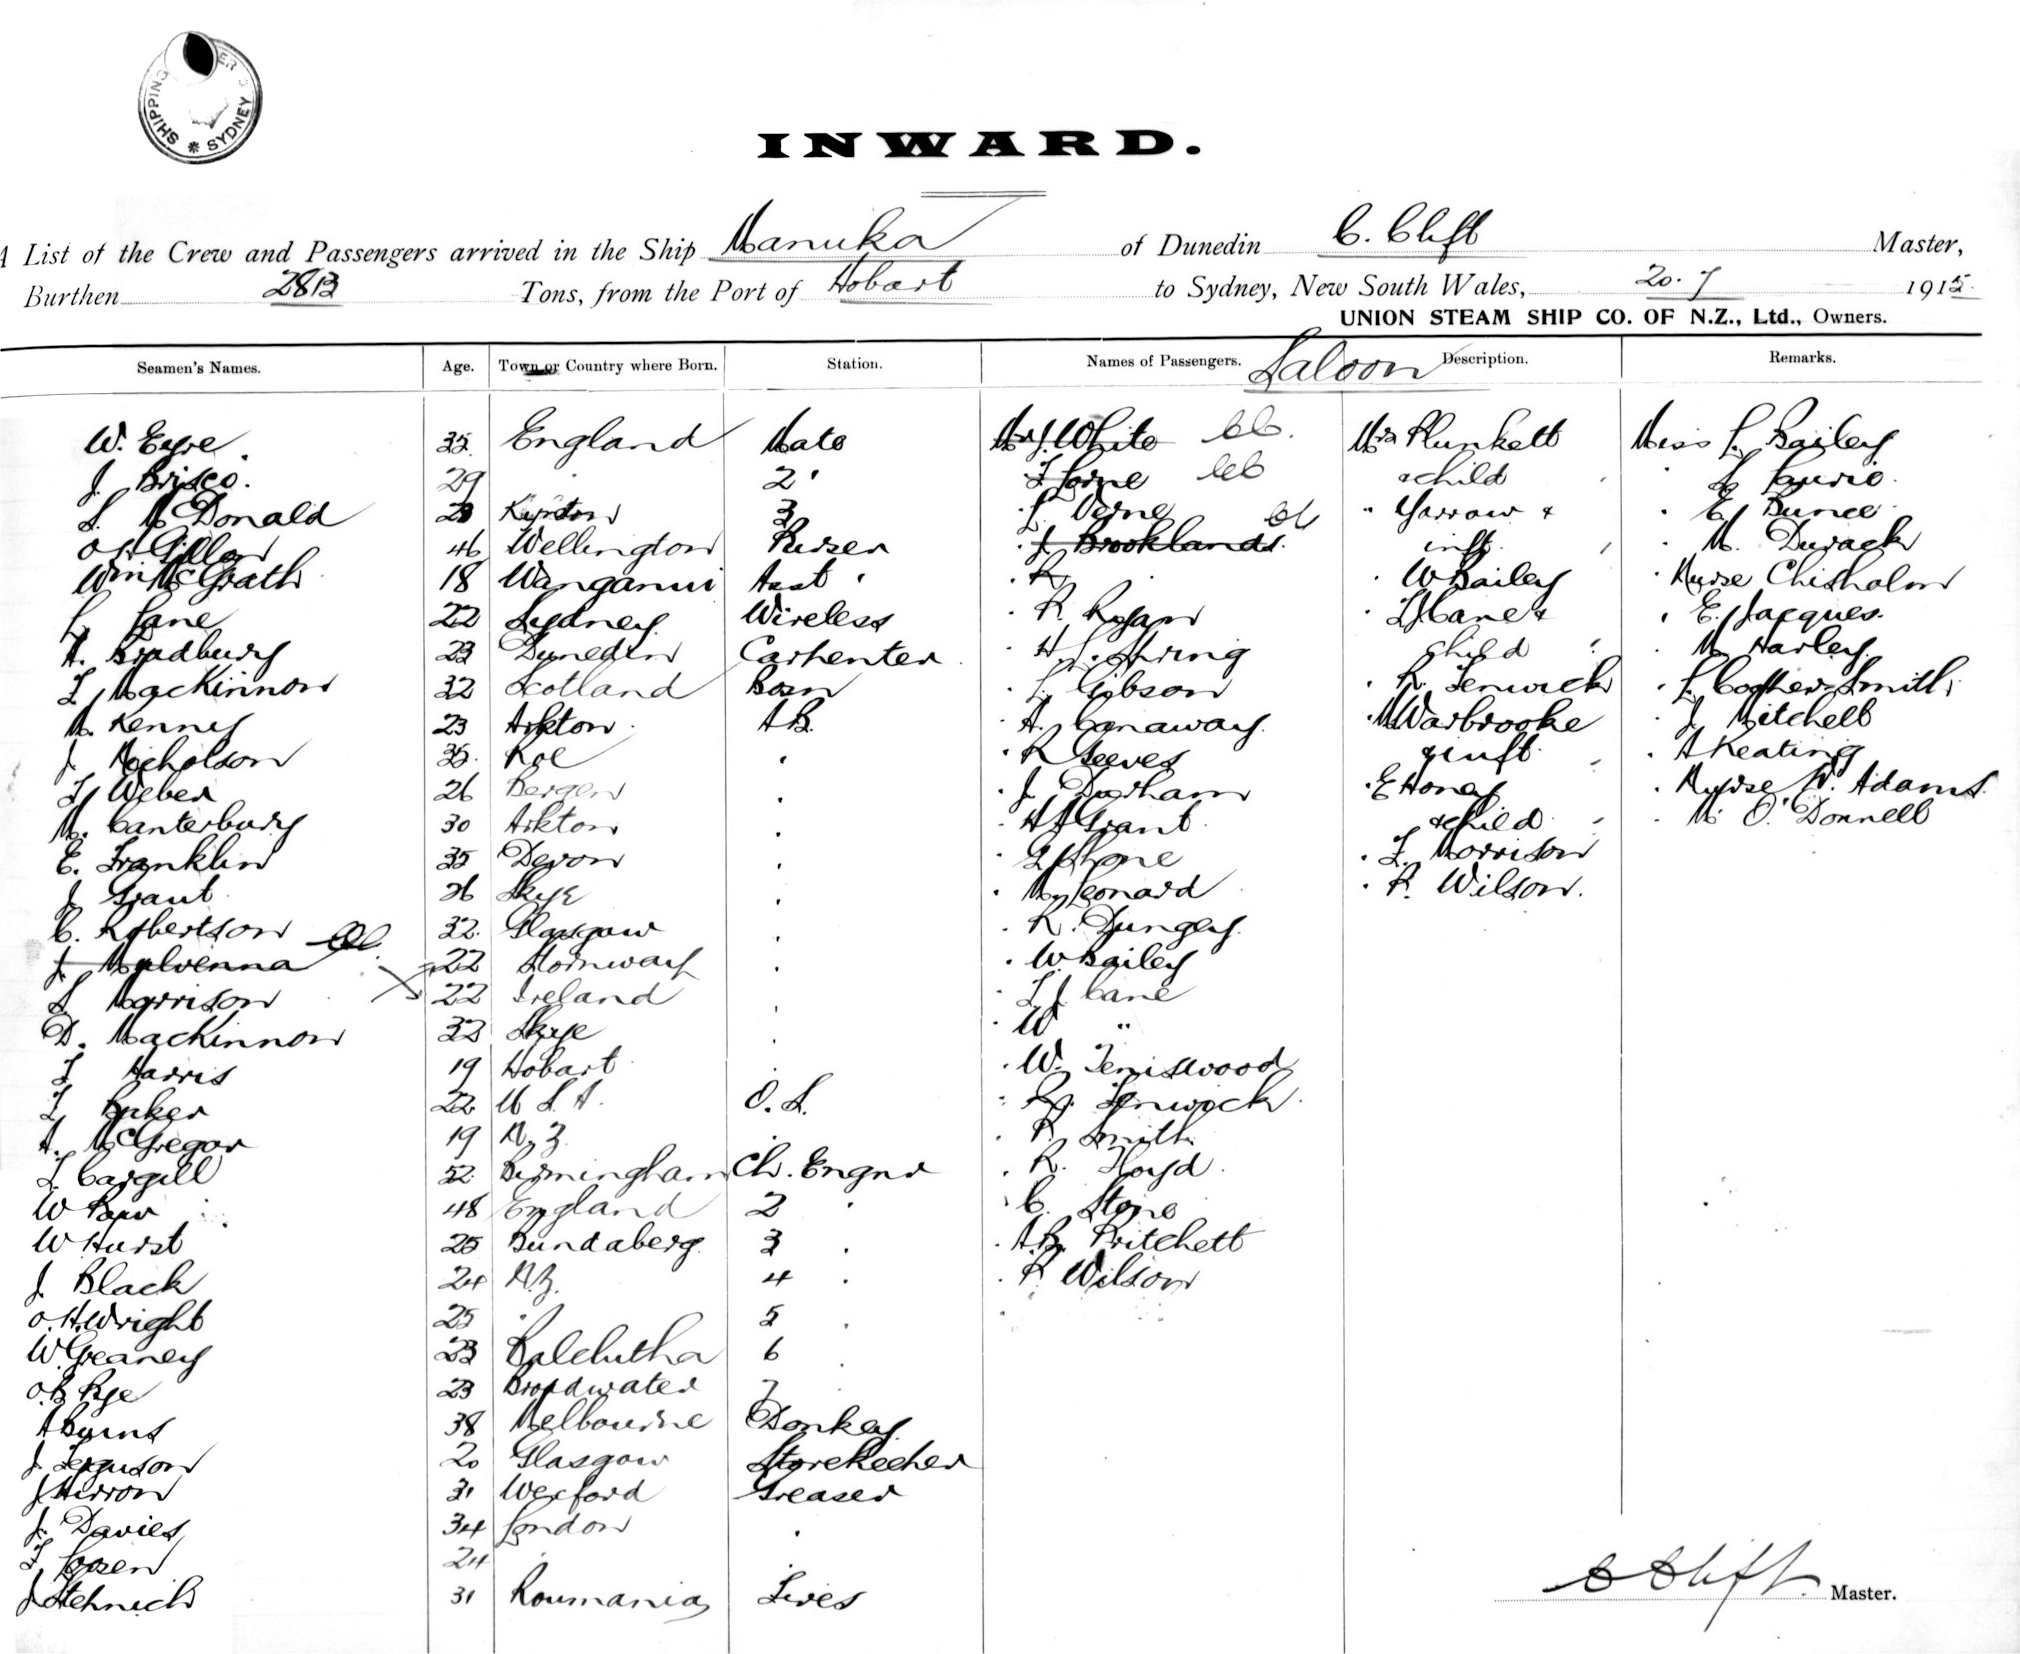 SHIPPING ER * SYDNEY *
INWARD.
A List of the Crew and Passengers arrived in the Ship Manuka of Dunedin C. Clift Master,
Burthen 2813 Tons, from the Port of Hobart to Sydney, New South Wales, 20.7 1915
UNION STEAM SHIP CO. OF N.Z., Ltd., Owners.
Seamen's Names. Age. Town or Country where Born. Station. Names of Passengers. Saloon Description. Remarks.
W. Eyre 35 England Mate Mr J. White Mrs Plunkett Miss L. Bailey
J. Brisco 29 2 " Lorne & child L Laurie
S. McDonald 23 Kyneton 3 L Verne " Yarrow & E Bunce
46 Wellington Purser J Brooklands inft M. Durack
Wm McGrath 18 Wanganui Asst R W Bailey Nurse Chisholm
L Lane 22 Sydney Wireless R Ryan Cane & E. Jacques
A. Bradbury 23 Dunedin Carpenter H String child M Harley
MacKinnon 32 Scotland Bosn L Gibson R. Fenwick Smith
M. Kenny 23 AB. A. Canaway Warbrooke J Mitchell
J Nicholson 35 Roe R Geeves & inft A Keating
Weber 26 Bergen J Durham E Honey Nurse W. Adams
M. Canterbury 30 Grant & child M O'Donnell
E. Franklin 35 Devon Morrison
J Grant 26 Skye M Leonard R. Wilson
C. Robertson 32 Glasgow R. Dungey
J. Mulvenna 22 W Bailey
S Morrison 22 Ireland Cane
D. MacKinnon 32 Skye W "
Harris 19 Hobart W. Teniswood
Baker 22 U S A. O. S. Fenwick
A. McGregor 19 N.Z. R. Smith
Cargill 52 Birmingham Ch. Engnr R. Floyd
W 48 England 2 " C. Stone
W Hurst 25 Bundaberg 3 " A.B. Pritchett
J Black 24 N.Z. 4 " R Wilson
O. H. Wright 25 " 5 "
W. Greaney 23 Balclutha 6 "
23 Broadwater 7
A Burns 38 Melbourne Donkey
J. Ferguson 20 Glasgow Storekeeper
J Herron 31 Wexford Greaser
J. Davies 34 London "
24 "
J 31 Roumania Fires
C Clift Master.